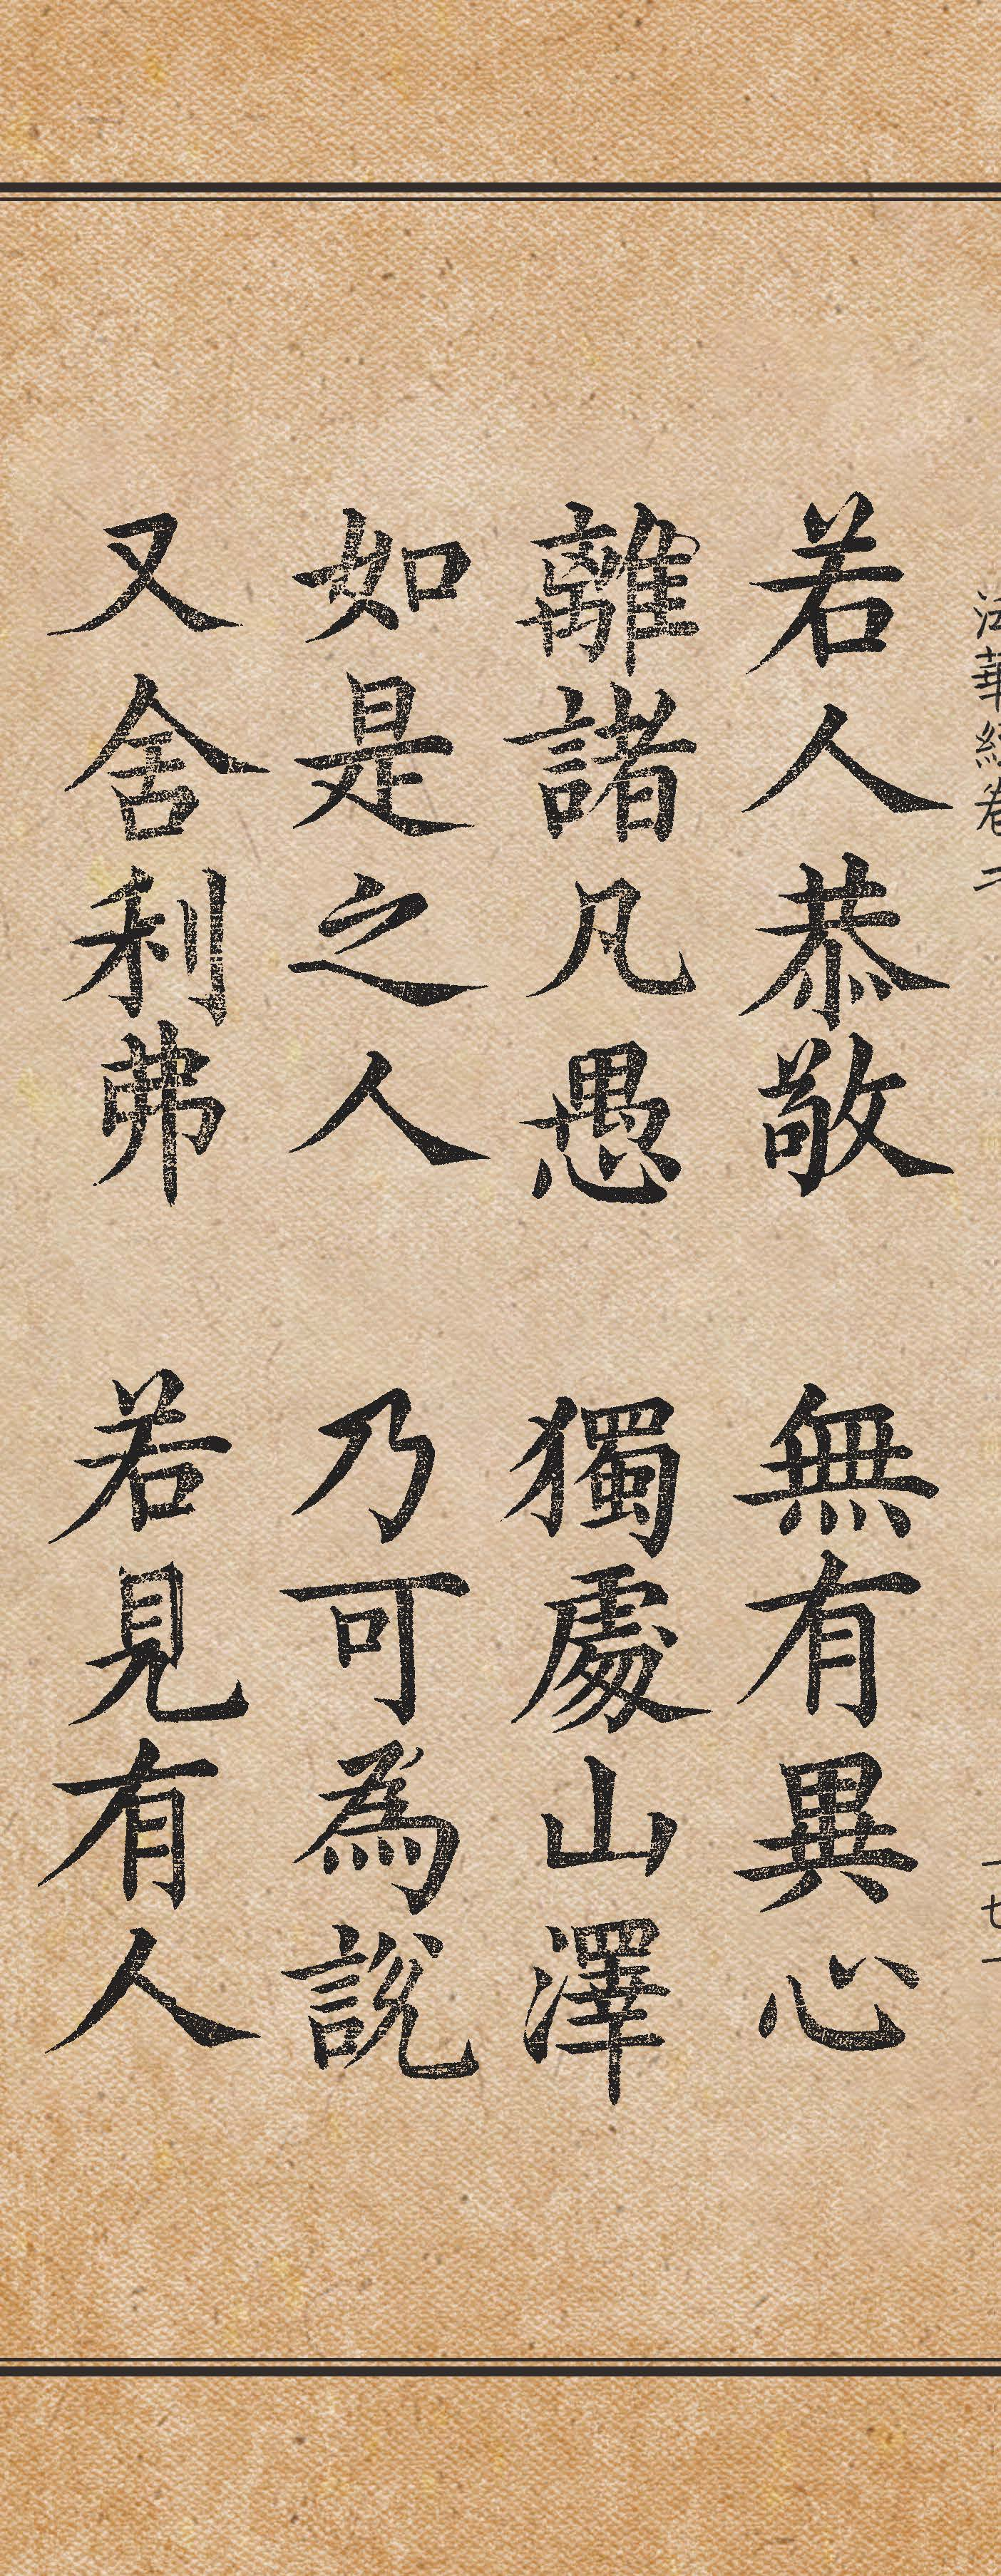 法華經卷二
一七一
若人恭敬 無有異心
離諸凡愚 獨處山澤
如是之人 乃可為說
又舍利弗 若見有人